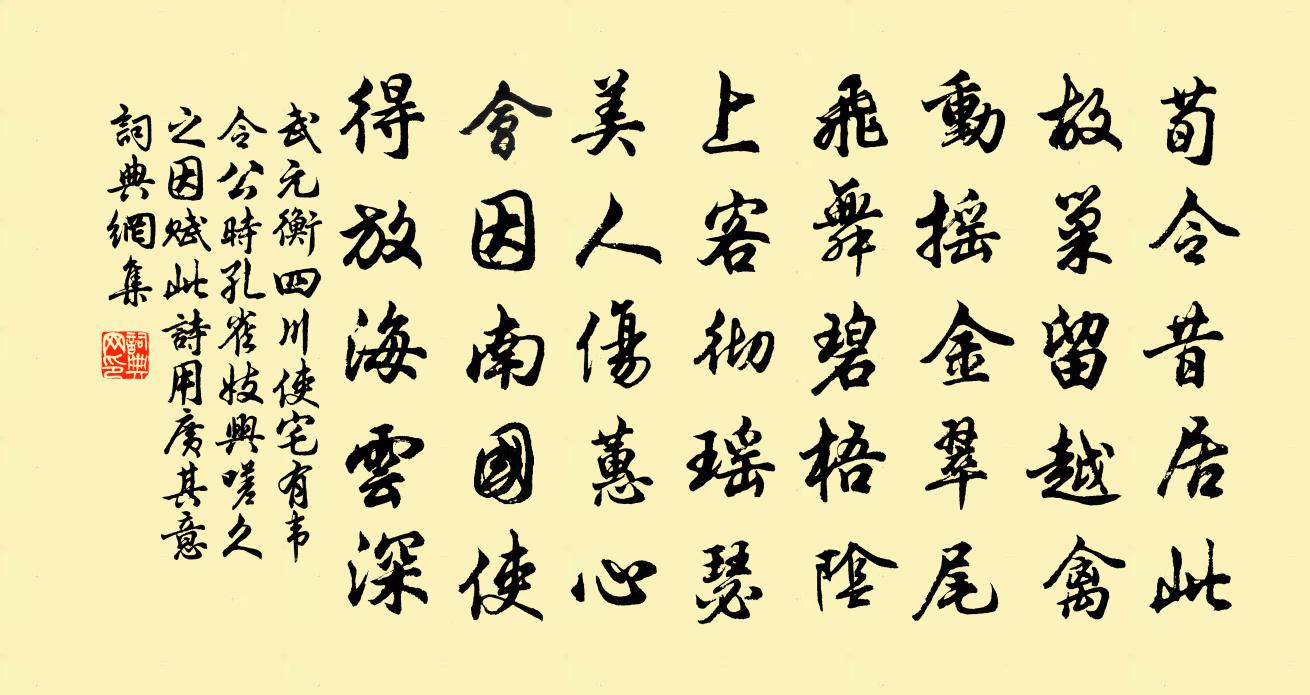 荀令昔居此
故巢留越禽
動摇金翠尾
飛舞碧梧陰
上客彻瑶瑟
美人傷蕙心
會因南國使
得放海雲深
武元衡四川使宅有韦
令公時孔雀妓興嗟久
之因赋此詩用廣其意
詞典網集
詞典
网印